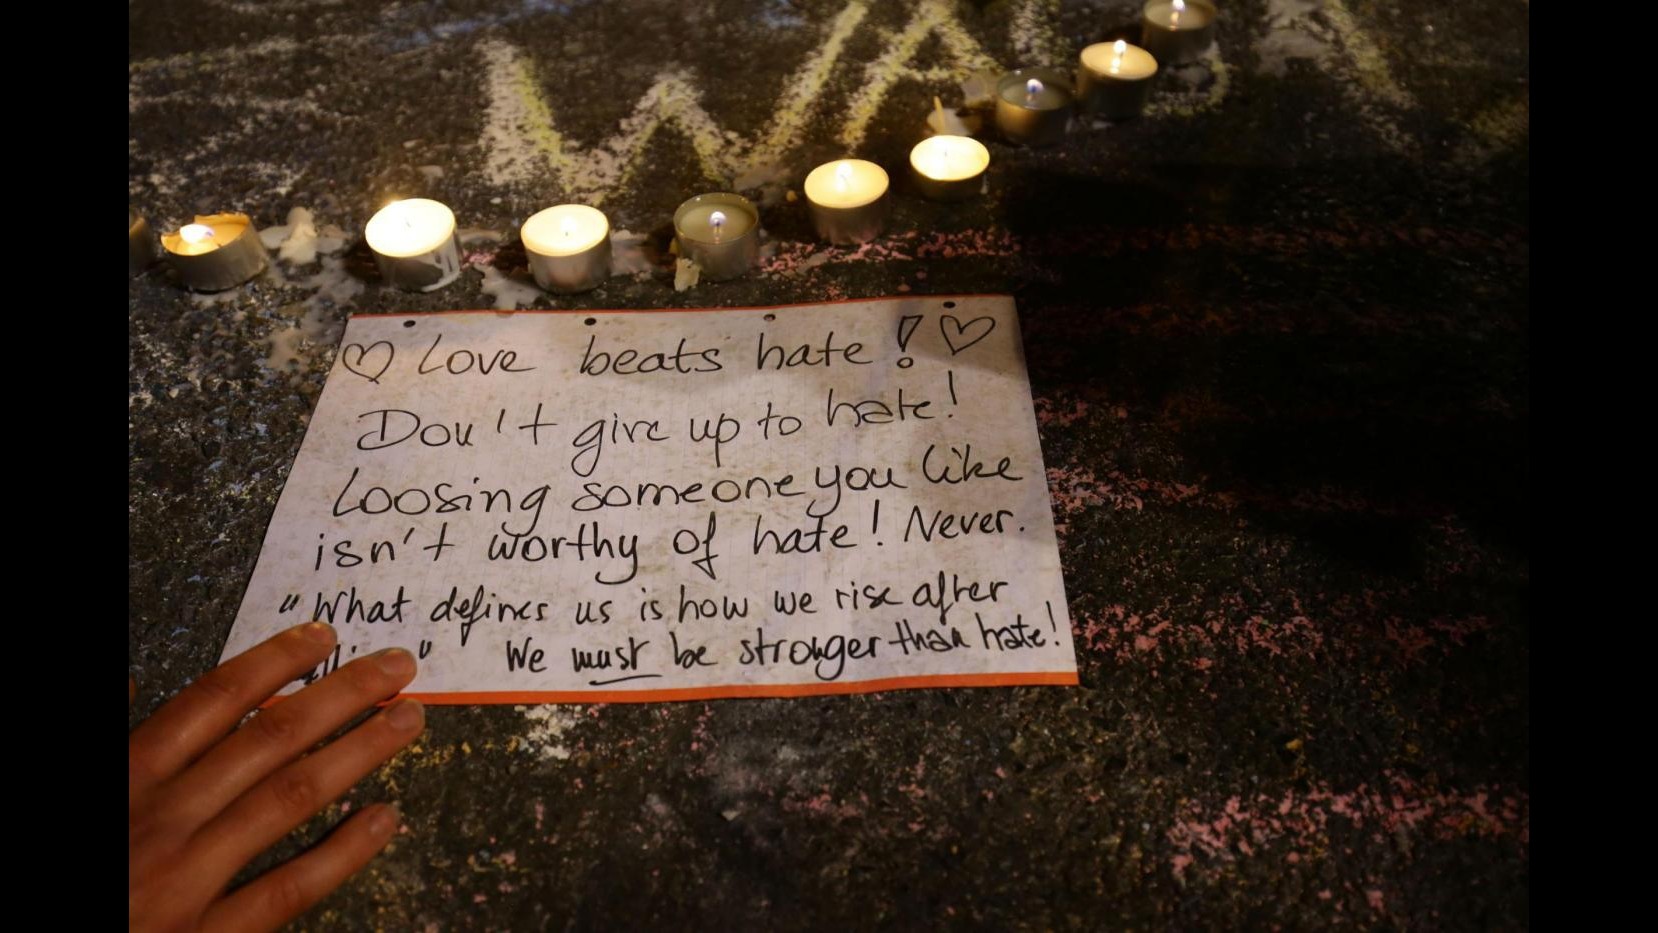 WA
♡ Love beats hate! ♡
Don't give up to hate!
Loosing someone you like
isn't worthy of hate! Never.
"What defines us is how we rise after
" We must be stronger than hate!